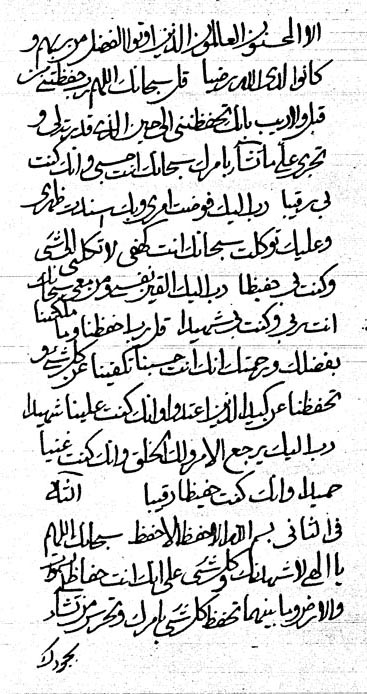 الا المحسنون العالمون الذين اوتوا الفضل من ربهم و
كانوا لدى الله رضيا قل سبحانك اللهم رب حفظتنى من
قبل ولاريب بانك تحفظنى الى حين الذى قدرت لى و
تجرى على ما تشآء بامرك سبحانك انت حسبى وانك كنت
بى رقيبا رب اليك فوضت امرى وبك اسندت ظهرى
وعليك توكلت سبحانك انت كهفى لا تكلنى الى شئ
وكنت بى حفيظا رب اليك القيت نفسى ومن معى سبحانك
انت ربى وكنت بى شهيدا قل رب احفظنا وما ملكتنا
بفضلك ورحمتك انك انت حسبنا تكفينا عن كل شئ و
تحفظنا عن كيد الذين اعتدوا وانك كنت علينا شهيدا
رب اليك يرجع الامر ولك الخلق وانك كنت غنيا
حميدا وانك كنت حفيظا رقيبا الثانى
فى الثانى بسم الله الاحفظ الاحفظ سبحانك اللهم
يا الهى لاشهدنك وكل شئ على انك انت حفاظ السموات
والارض وما بينهما تحفظ كل شئ بامرك وتحرس من تشآء
بجودك